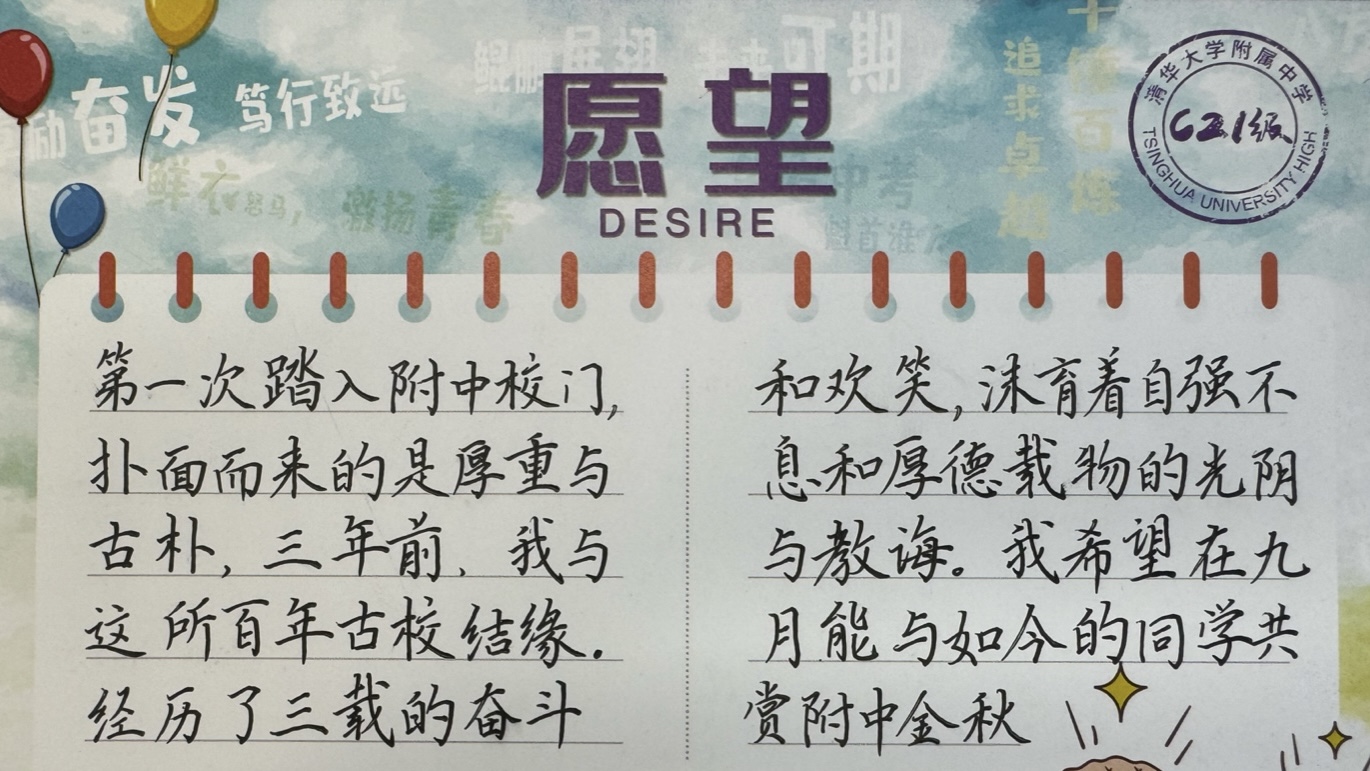 奋发
笃行致远
鲲鹏展翅 未来可期
追求卓越
千锤百炼
鲜衣怒马,
激扬青春
中考
愿望
DESIRE
清华大学附属中学
C21级
TSINGHUA UNIVERSITY HIGH
第一次踏入附中校门,
扑面而来的是厚重与
古朴, 三年前, 我与
这所百年古校结缘.
经历了三载的奋斗
和欢笑, 沫育着自强不
息和厚德载物的光阴
与教诲。我希望在九
月能与如今的同学共
赏附中金秋